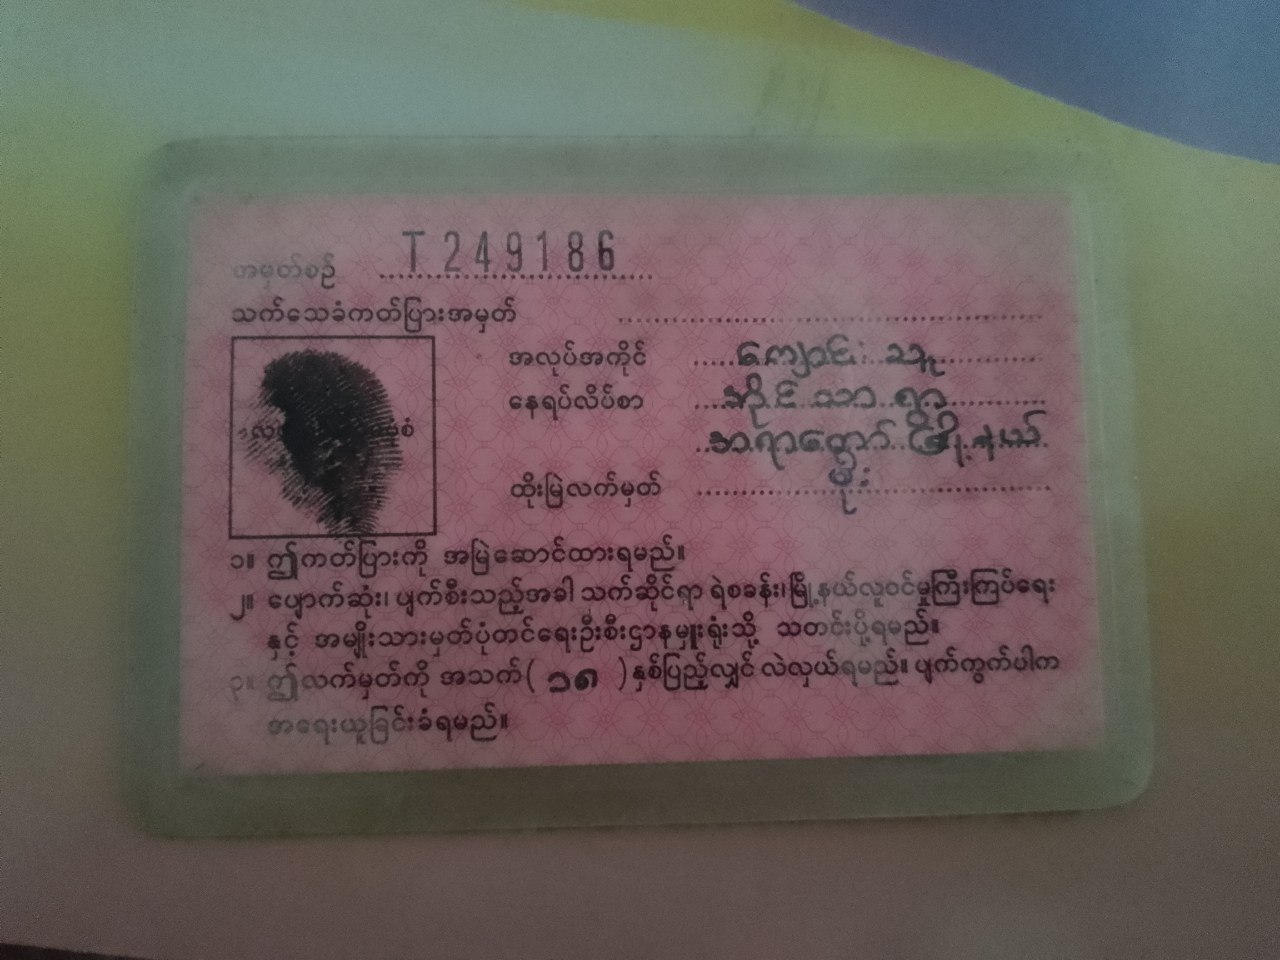 အမှတ်စဉ် T 249186
သက်သေခံကတ်ပြားအမှတ်
အလုပ်အကိုင် ကျောင်းသူ
နေရပ်လိပ်စာ
မြို့နယ်
ထိုးမြဲလက်မှတ်
၁။ ဤကတ်ပြားကို အမြဲဆောင်ထားရမည်။
၂။ ပျောက်ဆုံး၊ ပျက်စီးသည့်အခါ သက်ဆိုင်ရာ ရဲစခန်း၊ မြို့နယ်လူဝင်မှုကြီးကြပ်ရေး
နှင့် အမျိုးသားမှတ်ပုံတင်ရေးဦးစီးဌာနမှူးရုံးသို့ သတင်းပို့ရမည်။
၃။ ဤလက်မှတ်ကို အသက် ( ၁၈ ) နှစ်ပြည့်လျှင် လဲလှယ်ရမည်။ ပျက်ကွက်ပါက
အရေးယူခြင်းခံရမည်။